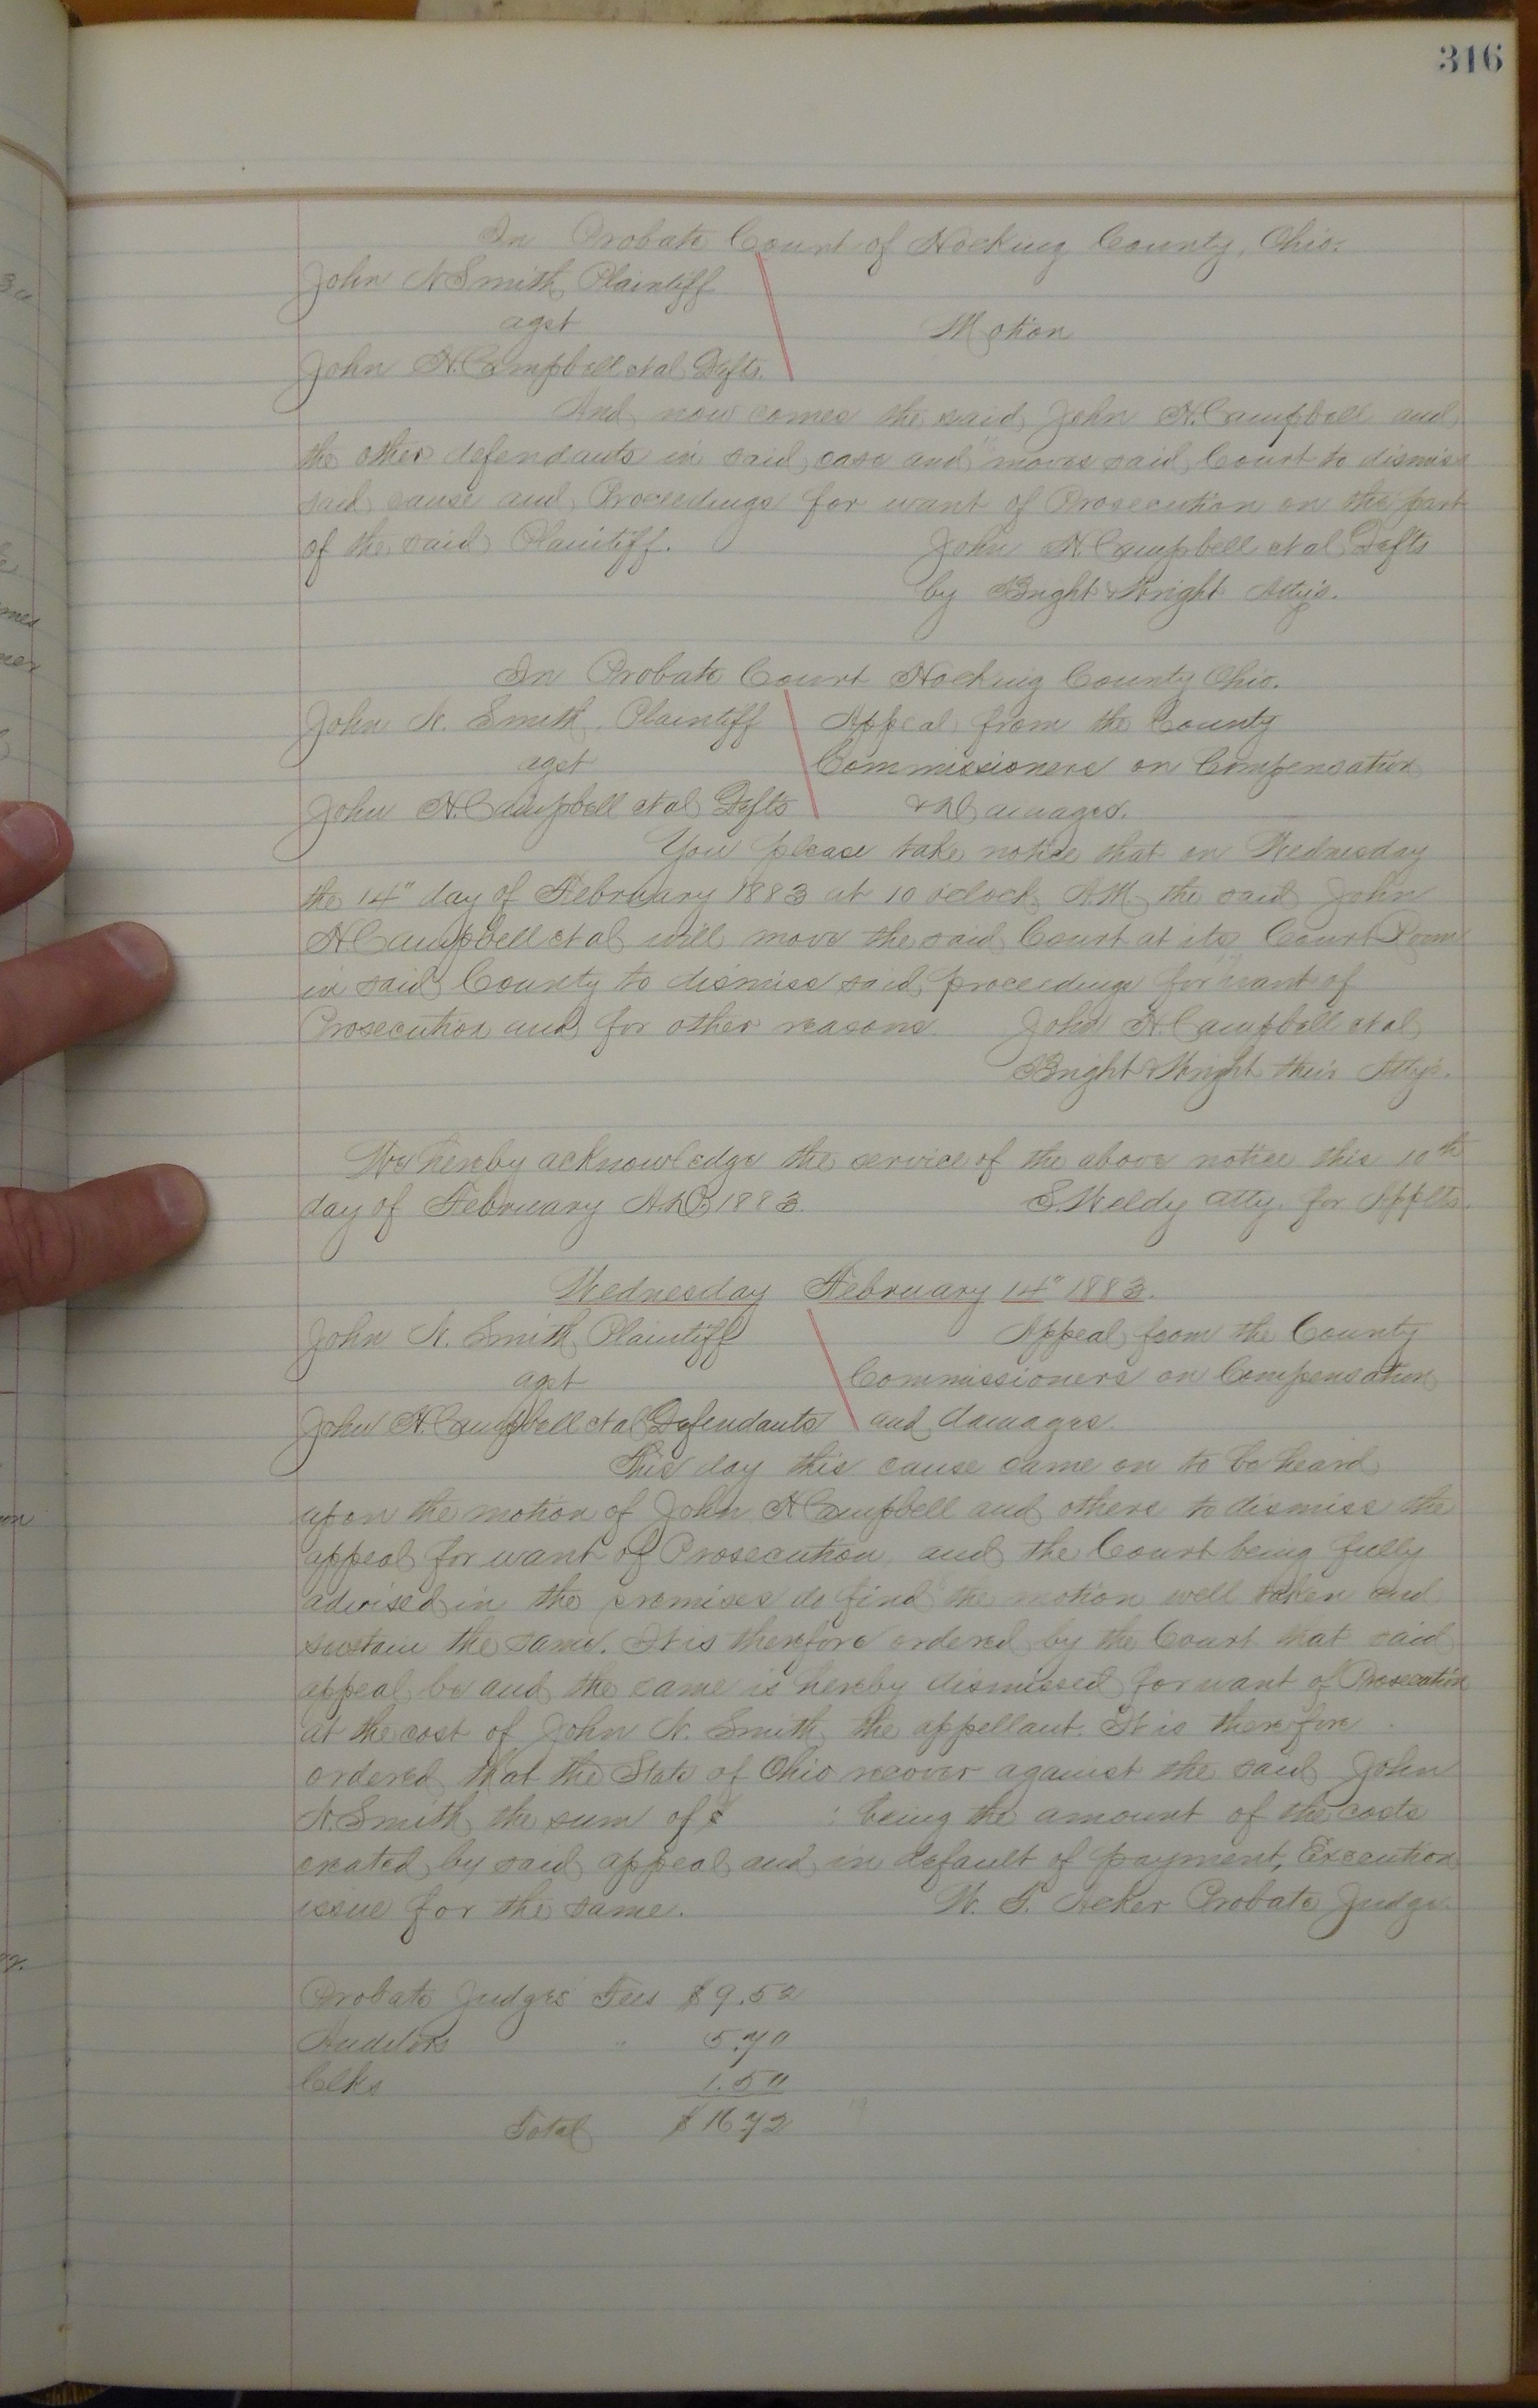 316
In Probate Court of Hocking County, Ohio.
John N Smith Plaintiff
agst
Motion
John H. Campbell et al Defts.
And now comes the said John H. Campbell and
the other defendants in said case and moves said Court to dismiss
said cause and Proceedings for want of Prosecution on the part
of the said Plaintiff. John H. Campbell et al Defts
by Bright & Wright Atty's.
In Probate Court Hocking County Ohio.
John N. Smith, Plaintiff Appeal from the County
agst Commissioners on Compensation
John H. Campbell et al Defts & Damages.
You please take notice that on Wednesday
the 14" day of February 1883 at 10 oclock A.M. the said John
H Campbell et al will move the said Court at its Court Room
in said County to dismiss said proceedings for want of
Prosecution and for other reasons. John H. Campbell et al
Bright & Wright their Atty's.
We hereby acknowledge the service of the above notice this 10th
day of February A.D. 1883. S. Weldy atty. for Applts.
Wednesday February 14" 1883.
John N. Smith Plaintiff Appeal from the County
agst Commissioners on Compensation
John H. Campbell et al Defendants and damages.
This day this cause came on to be heard
upon the motion of John H Campbell and others to dismiss the
appeal for want of Prosecution, and the Court being fully
advised in the premises do find the motion well taken and
sustain the same. It is therefore ordered by the Court that said
appeal be and the same is hereby dismissed for want of Prosecution
at the cost of John N. Smith, the appellant. It is therefore
ordered that the State of Ohio recover against the said John
N. Smith the sum of $ : being the amount of the costs
created by said appeal and in default of payment, Execution
issue for the same. W. T. Acker Probate Judge.
Probate Judges Fees $9.52
Auditors " 5.70
Clks 1.50
Total $16.72